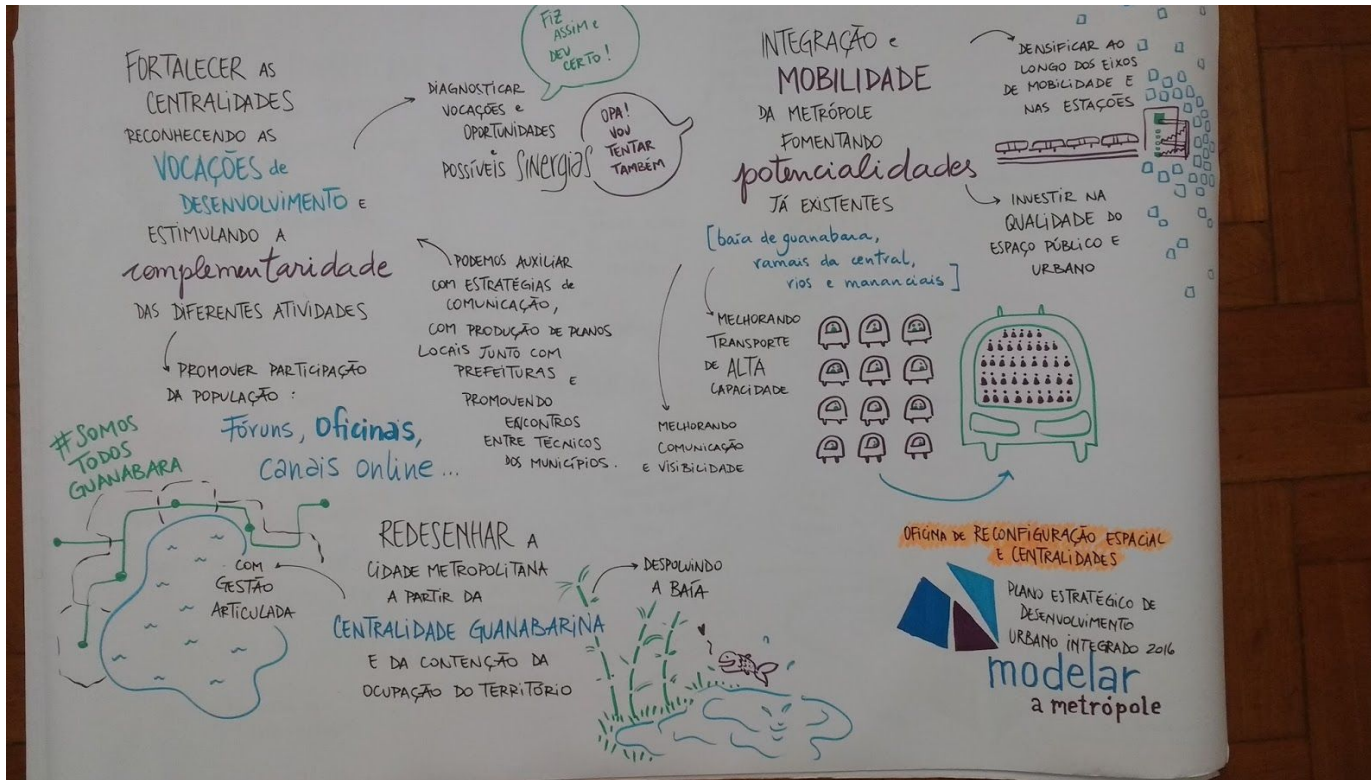 FORTALECER AS
CENTRALIDADES
RECONHECENDO AS
VOCAÇÕES de
DESENVOLVIMENTO E
ESTIMULANDO A
complementaridade
DAS DIFERENTES ATIVIDADES
PROMOVER PARTICIPAÇÃO
DA POPULAÇÃO:
Fóruns, Oficinas,
canais online...
DIAGNOSTICAR
VOCAÇÕES e
OPORTUNIDADES
e
POSSÍVEIS SINERGIAS
FIZ
ASSIM e
DEU
CERTO!
OPA!
VOU
TENTAR
TAMBÉM
PODEMOS AUXILIAR
COM ESTRATÉGIAS de
COMUNICAÇÃO,
COM PRODUÇÃO DE PLANOS
LOCAIS JUNTO COM
PREFEITURAS E
PROMOVENDO
ENCONTROS
ENTRE TÉCNICOS
DOS MUNICÍPIOS.
INTEGRAÇÃO e
MOBILIDADE
DA METRÓPOLE
FOMENTANDO
potencialidades
JÁ EXISTENTES
[baía de guanabara,
ramais da central,
rios e mananciais]
DENSIFICAR AO
LONGO DOS EIXOS
DE MOBILIDADE E
NAS ESTAÇÕES
INVESTIR NA
QUALIDADE DO
ESPAÇO PÚBLICO E
URBANO
MELHORANDO
TRANSPORTE
DE ALTA
CAPACIDADE
MELHORANDO
COMUNICAÇÃO
E VISIBILIDADE
#SOMOS
TODOS
GUANABARA
COM
GESTÃO
ARTICULADA
REDESENHAR A
CIDADE METROPOLITANA
A PARTIR DA
CENTRALIDADE GUANABARINA
E DA CONTENÇÃO DA
OCUPAÇÃO DO TERRITÓRIO
DESPOLUINDO
A BAÍA
OFICINA DE RECONFIGURAÇÃO ESPACIAL
E CENTRALIDADES
PLANO ESTRATÉGICO DE
DESENVOLVIMENTO
URBANO INTEGRADO 2016
modelar
a metrópole